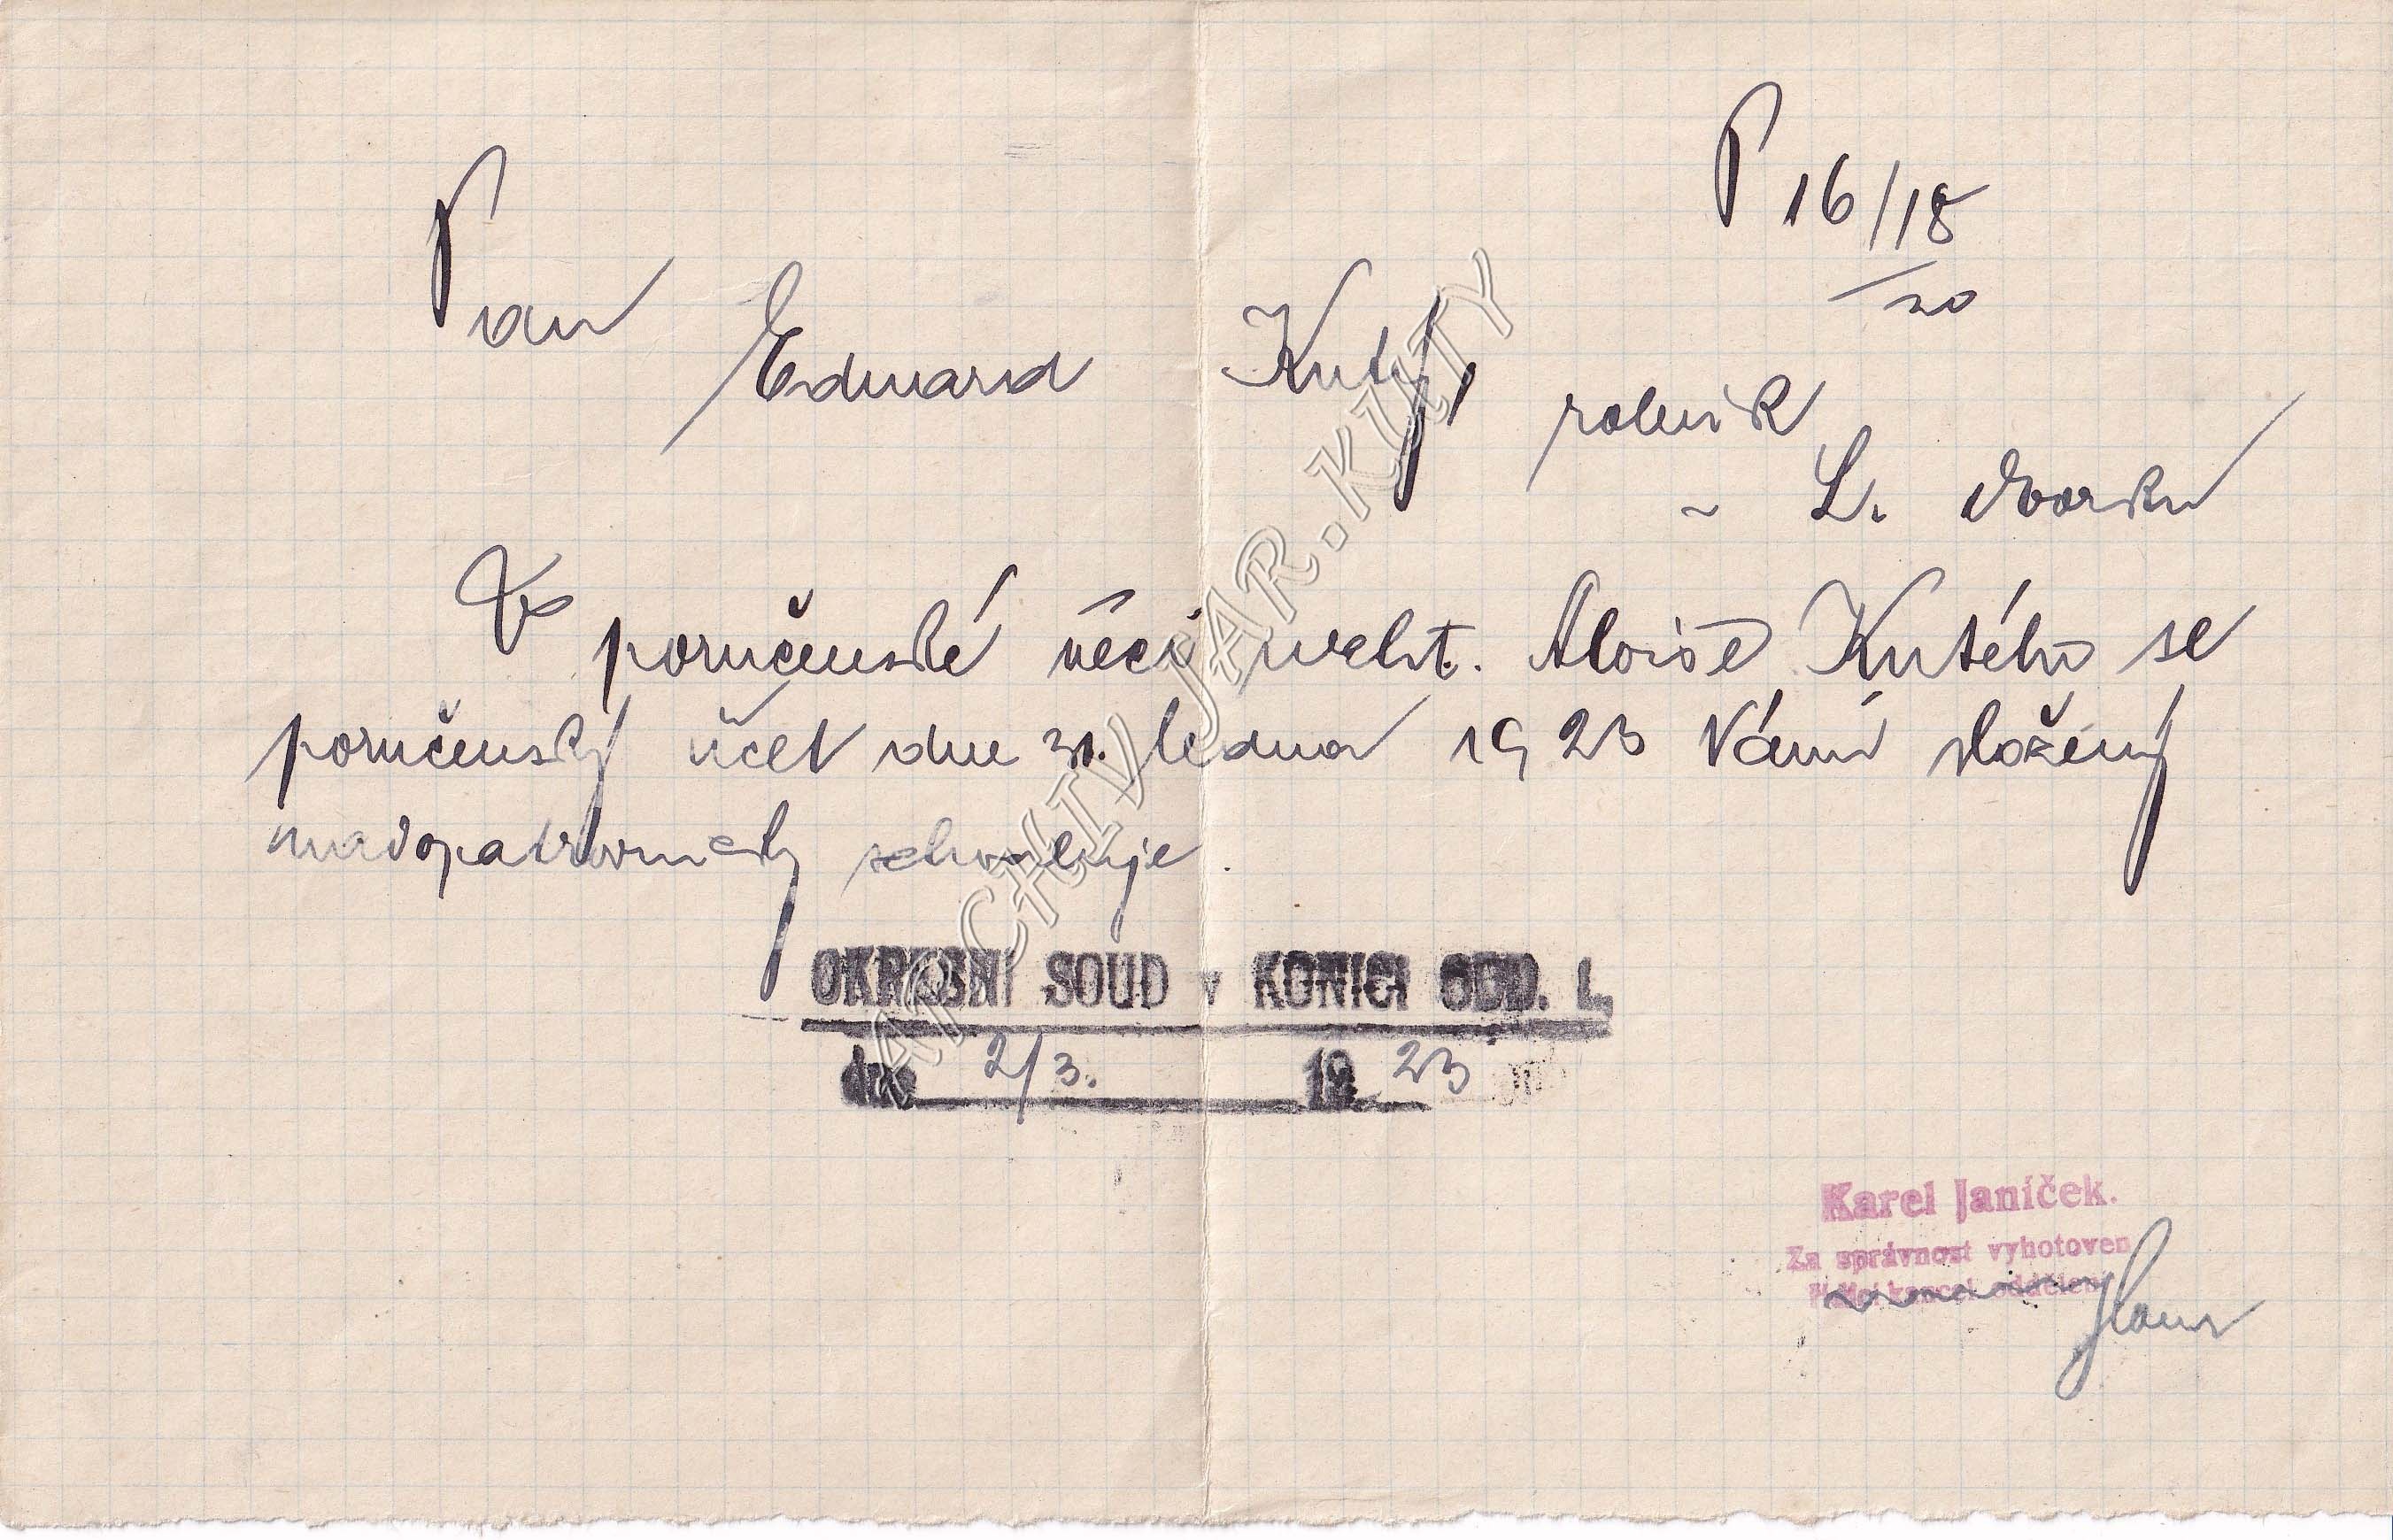 P 16/18
/20
Pan
Eduard Kutý, rolník
v L. dvorku
Ve poručenské věci nezlet. Aloise Kutého se
poručenský účet dne 31. ledna 1923 Vámi složený
nadopatrovnicky schvaluje.
OKRESNÍ SOUD v KONICI ODD. I.
dne 2/3. 19 23
Karel Janíček.
Za správnost vyhotovení
oddělení
ARCHIV JAR. KUTÝ